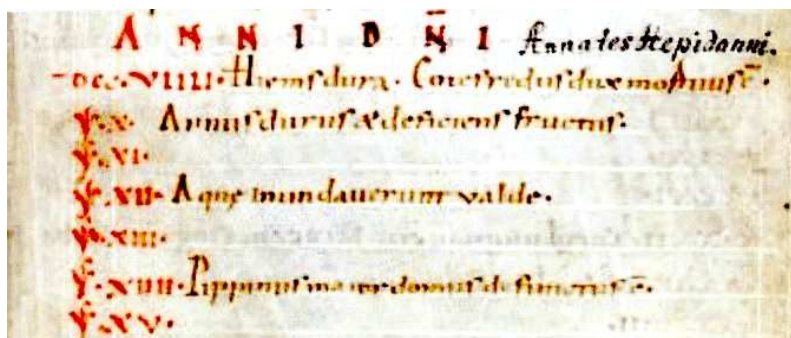 ANNI DN̄I Annales Hepidanni.
DCC.VIIII. Hiems dura. Cotefredus dux mortuus ē.
X. Annus durus & deficiens fructus.
XI.
XII. Aquę inundauerunt valde.
XIII.
XIIII. Pippinus maior domus defunctus ē.
XV.